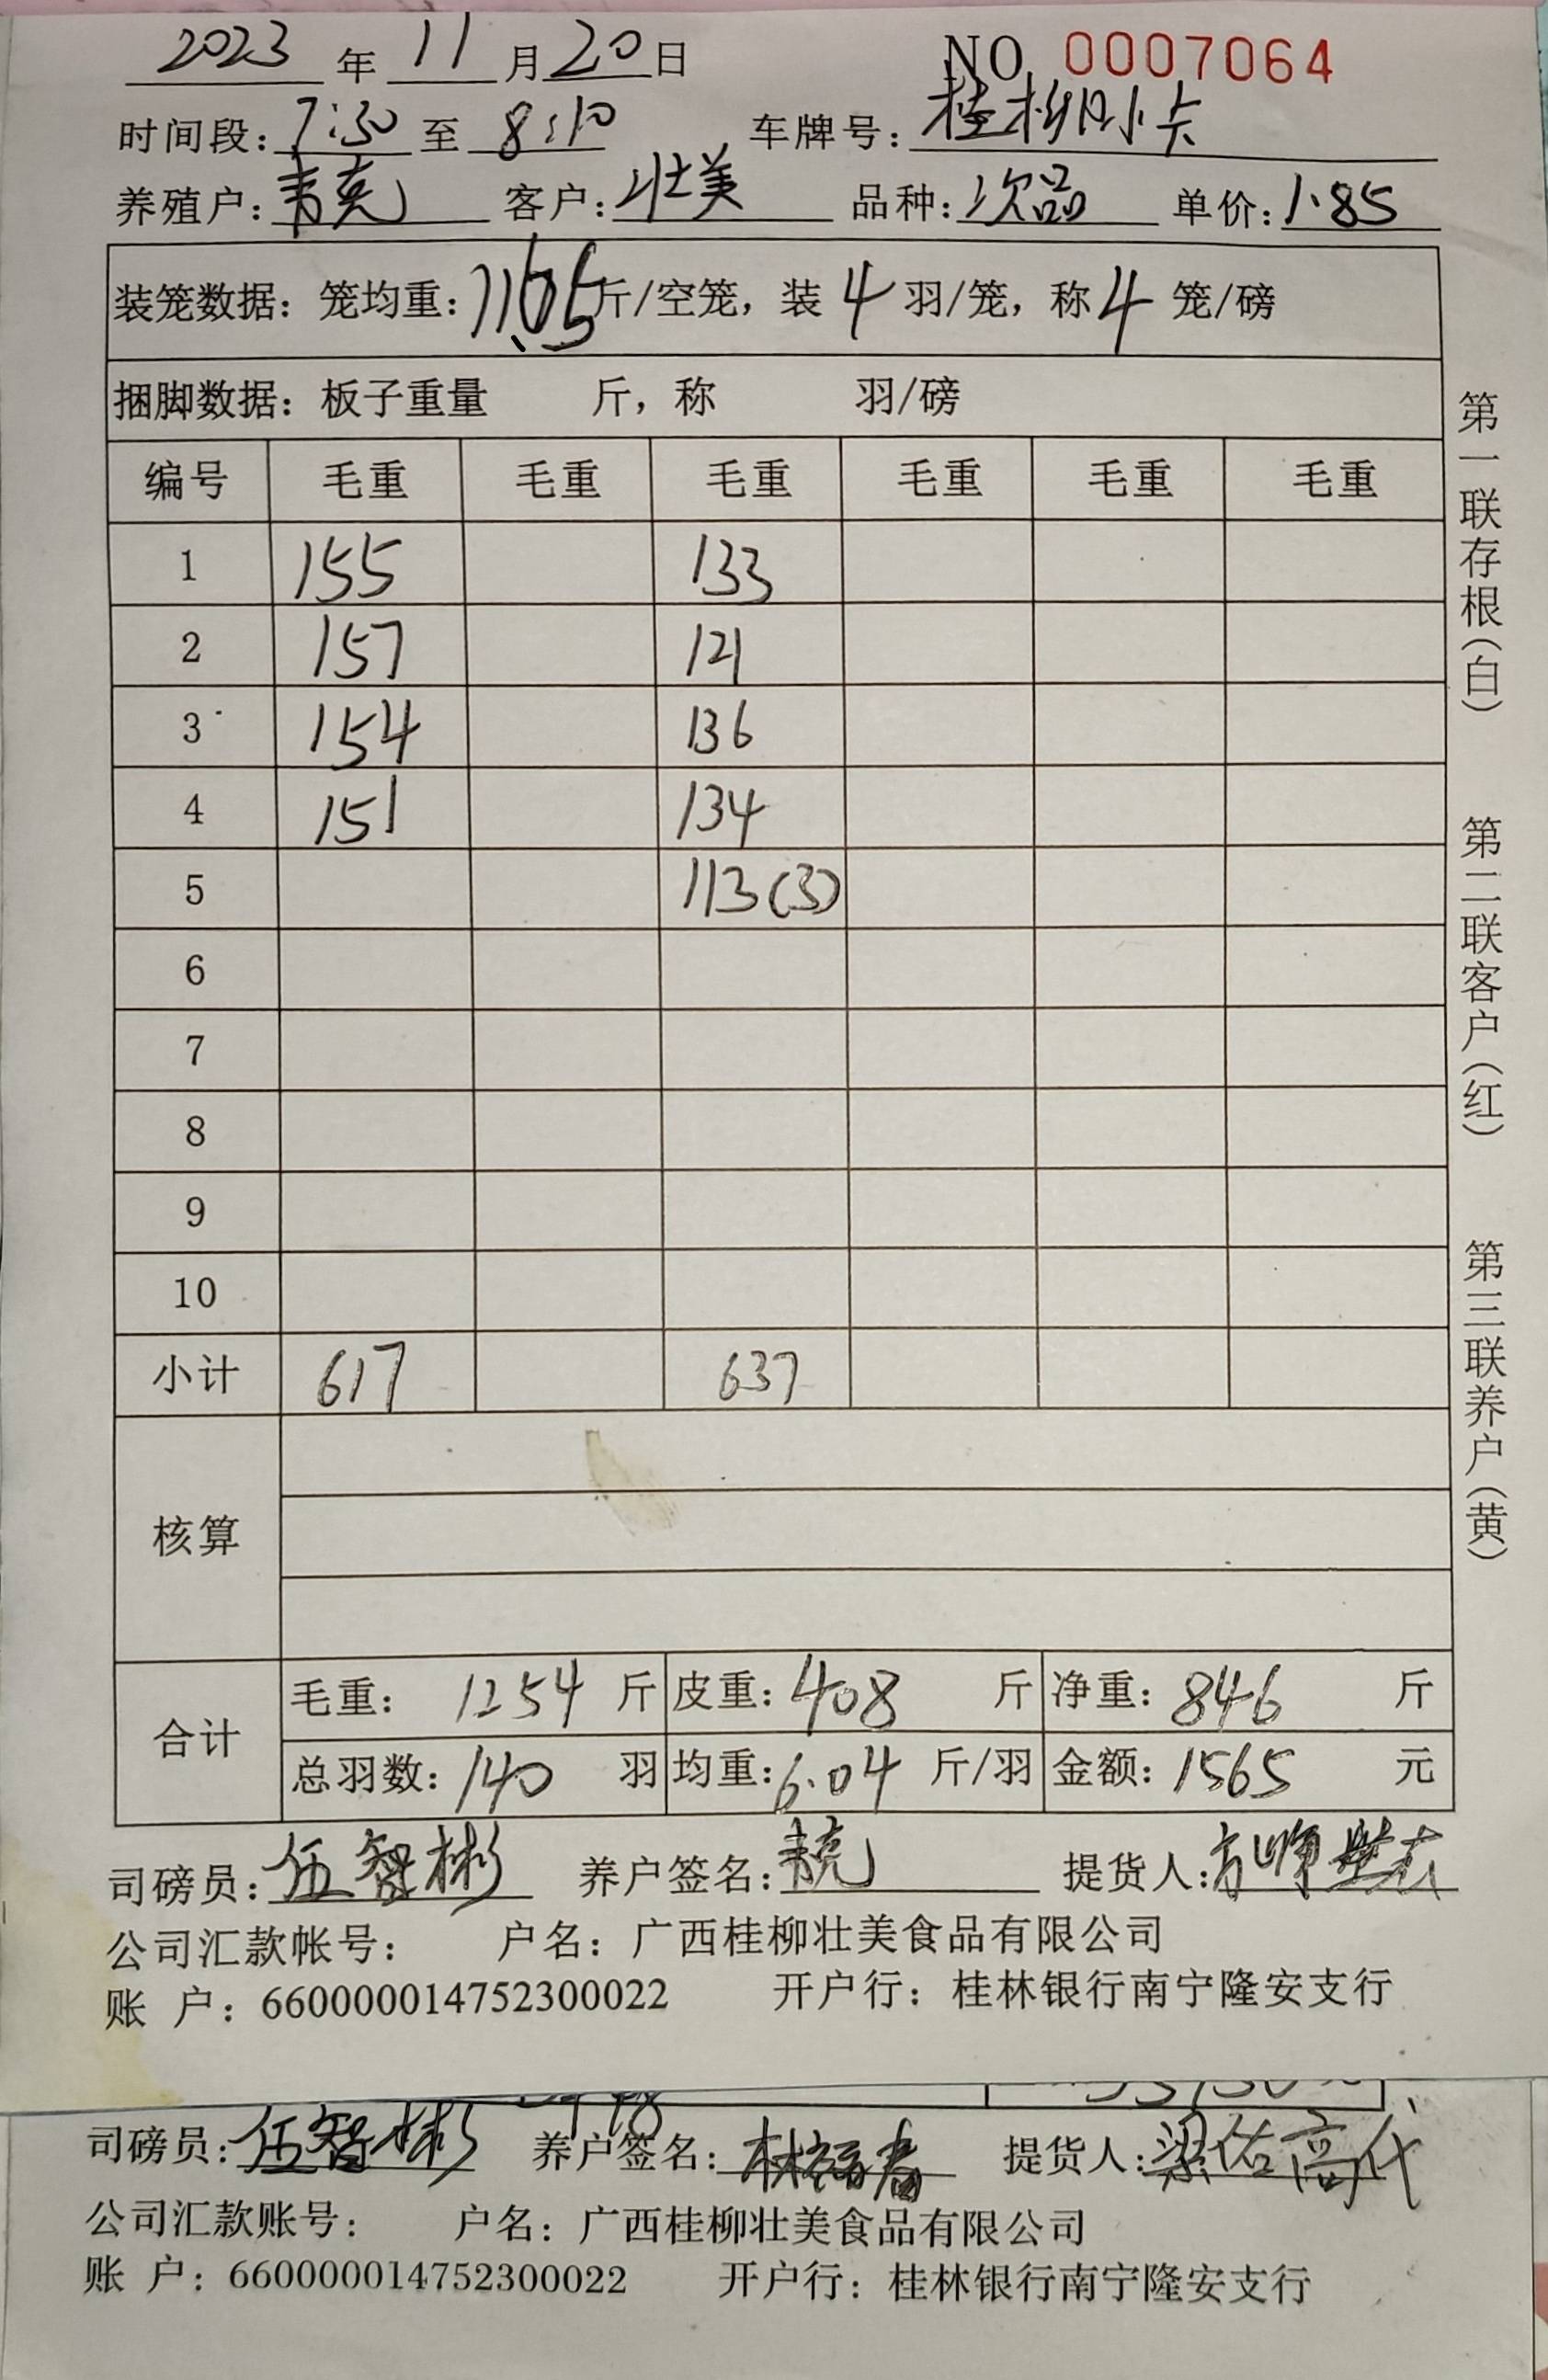 2023 年 11 月 20 日 NO 0007064
时间段: 7:30 至 8:10 车牌号: 桂柳 小卡
养殖户: 韦克 客户: 壮美 品种: 次品 单价: 1.85
装笼数据: 笼均重: 斤/空笼, 装 4 羽/笼, 称 4 笼/磅
捆脚数据: 板子重量 斤, 称 羽/磅
编号 毛重 毛重 毛重 毛重 毛重 毛重
1 155 133
2 157 121
3 154 136
4 151 134
5 113(3)
6
7
8
9
10
小计 617 637
核算
合计
毛重: 1254 斤 皮重: 408 斤 净重: 846 斤
总羽数: 140 羽 均重: 6.04 斤/羽 金额: 1565 元
司磅员: 伍智彬 养户签名: 韦克 提货人:
公司汇款帐号: 户名: 广西桂柳壮美食品有限公司
账 户: 660000014752300022 开户行: 桂林银行南宁隆安支行
第一联存根(白) 第二联客户(红) 第三联养户(黄)
司磅员: 伍智彬 养户签名: 提货人: 梁佑高代
公司汇款账号: 户名: 广西桂柳壮美食品有限公司
账 户: 660000014752300022 开户行: 桂林银行南宁隆安支行